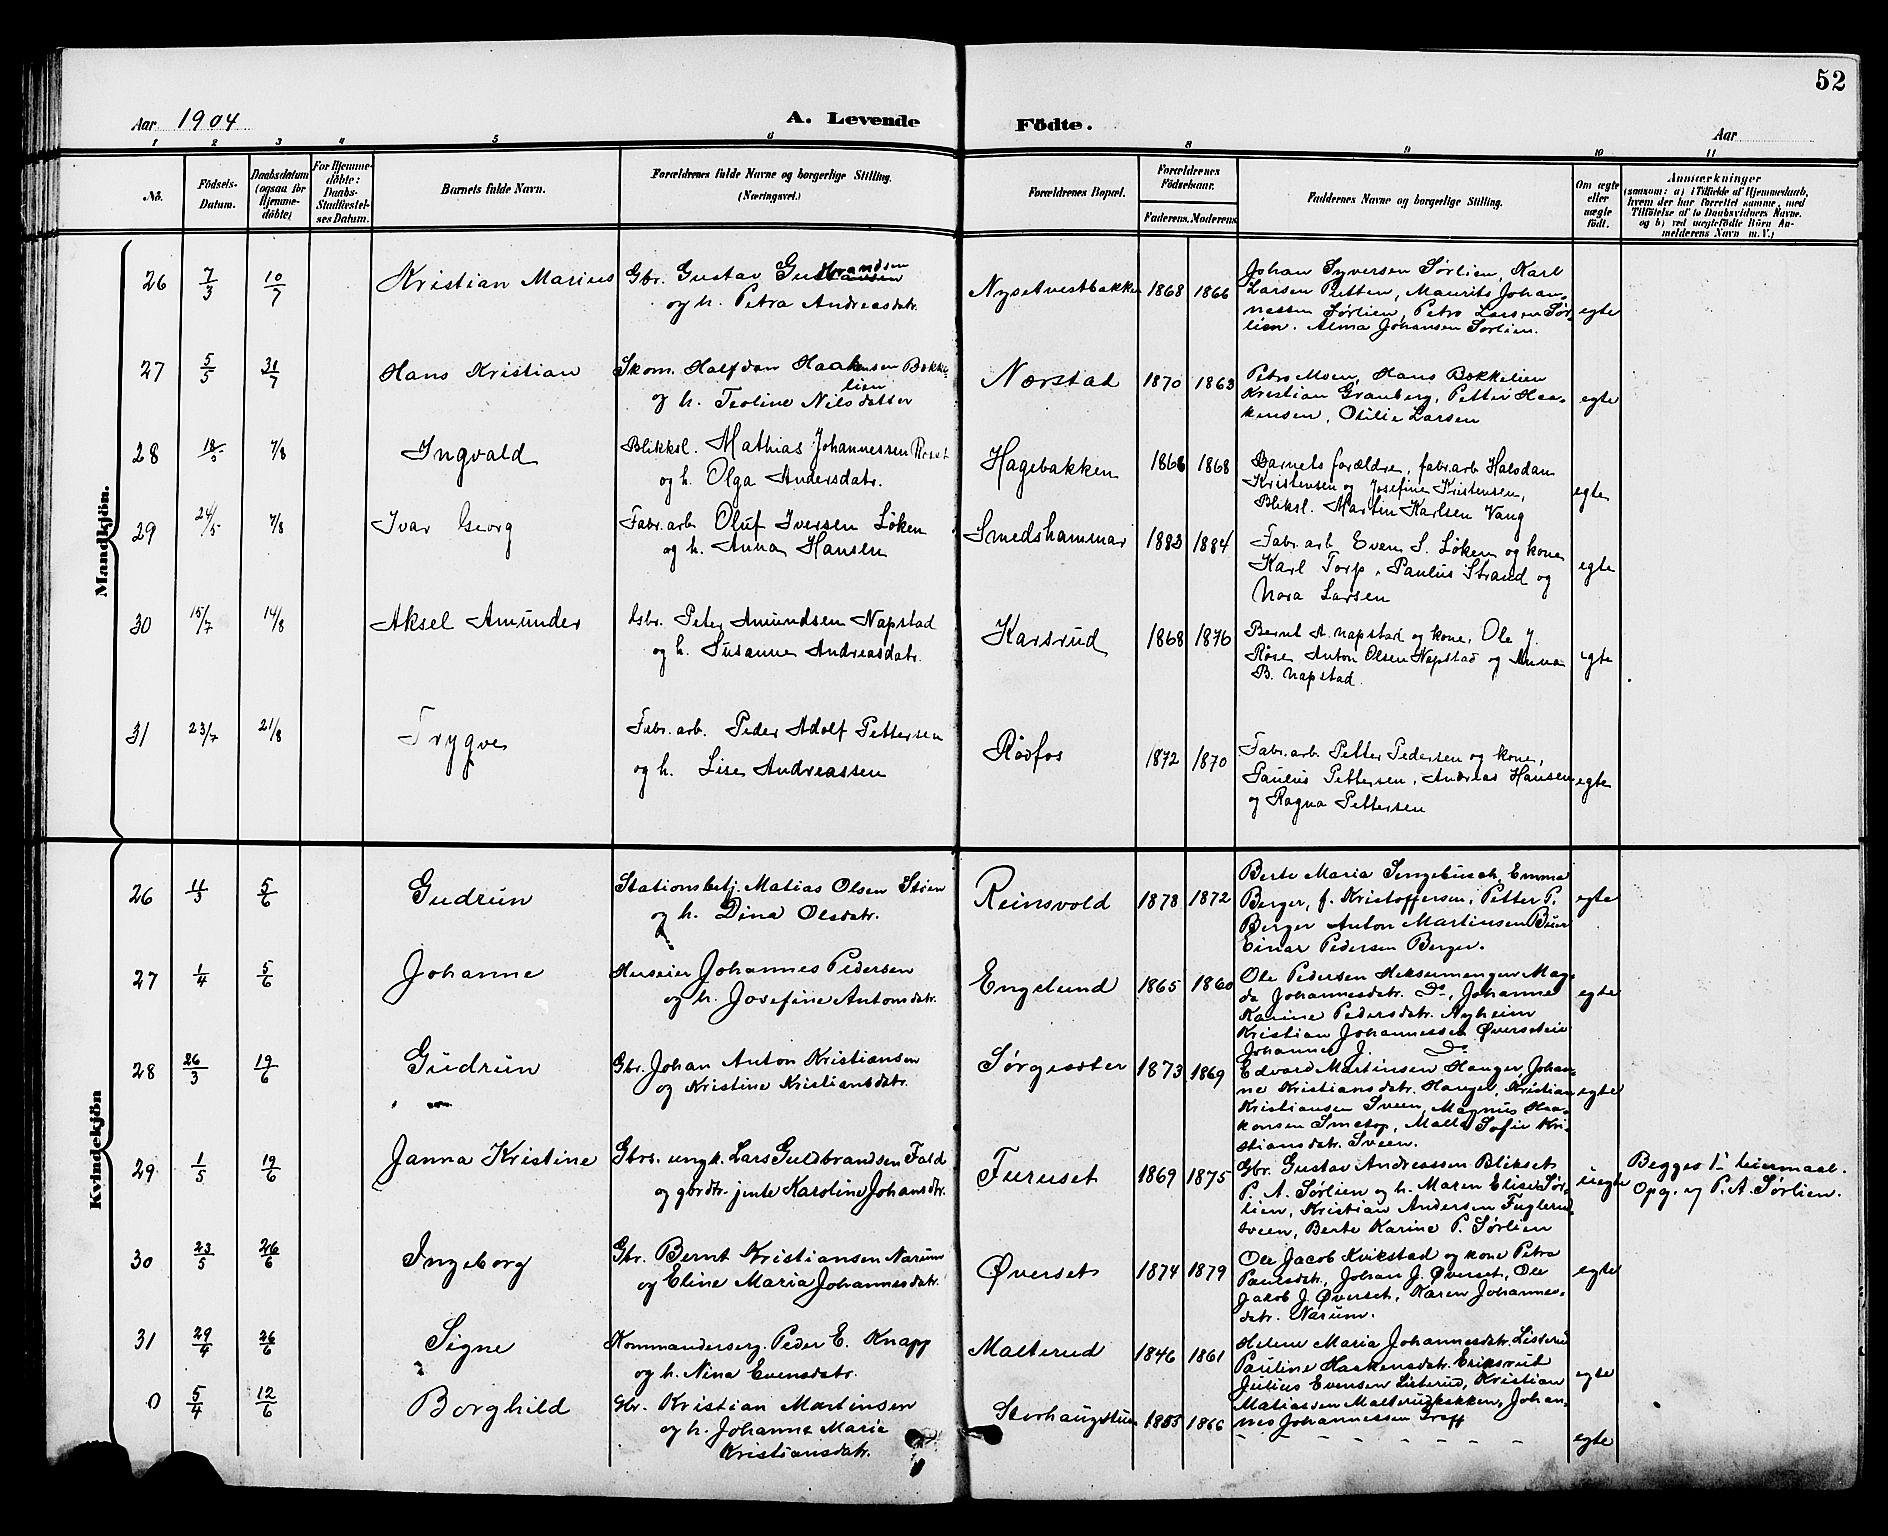 52
Aar 1904
A. Levende Födte.
Aar
1 2 3 4 5 6 8 9 10 11
No. Födsels-Datum. Daabsdatum (ogsaa for Hjemmedöbte) For Hjemmedöbte: Daabs-Stadfæstelses Datum. Barnets fulde Navn. Forældrenes fulde Navne og borgerlige Stilling. (Næringsvei.) Forældrenes Bopæl. Forældrenes Födselsaar. Faderens. Moderens. Faddernes Navne og borgerlige Stilling. Om ægte eller uægte födt. Anmærkninger
(saasom: a) i Tilfælde af Hjemmedaab, hvem der har forrettet samme, med Tilföielse af to Daabsvidners Navne. og b) ved uægtefödte Börn Anmelderens Navn m. V.)
Mandkjön.
26 7/3 10/7 Kristian Marius Gbr. Gustav
og h. Petra Andreasdatr. Nysetvestbakken 1868 1866
Johan Syversen Sørlien, Karl
Larsen Pletten, Maurits Johan-
nessen Sørlien, Petra Larsen Sør-
lien. Alma Johansen Sørlien. egte
27 5/5 31/7 Hans Kristian Skom. Halfdan Haakensen Bække-
lien
og h. Teoline Nilsdatter Nærstad 1870 1863
Petra Moen, Hans Bækkelien
Kristian Granberg, Petter Haa-
kensen, Otilie Larsen egte
28 18/5 7/8 Ingvald Blikksl. Mathias Johannessen
og h. Olga Andersdatr. Hagebakken 1868 1868
Barnets forældre, fabr.arb Halvdan
Kristensen og Josefine Kristensen,
Bliksl. Martin Karlsen Vang egte
29 24/5 7/8 Ivar Georg Fabr. arb. Oluf Iversen Løken
og h. Anna Hansen Smedshammar 1883 1884
Fabr. arb Even S. Løken og kone
Karl Torp, Paulus Strand og
Nora Larsen egte
30 15/7 14/8 Aksel Amunder Gbr. Peter Amundsen Napstad
og h. Susanne Andreasdatr. Karsrud 1868 1876
Bernt A. Napstad og kone, Ole J.
Røise Anton Olsen Napstad og Anna
B. Napstad. egte
31 23/7 21/8 Trygve Fabr. arb. Peder Adolf Pettersen
og h. Lise Andreassen Rødfos 1872 1870
Fabr. arb. Petter Pedersen og kone,
Paulus Pettersen, Andreas Hansen
og Ragna Pettersen egte
Kvindekjön
26 11/3 5/6 Gudrun Stationsbetj. Matias Olsen Støen
og h. Dina Olsdatr. Reinsvold 1878 1872
Berte Maria Sengebusch, Emma
Berger, f. Kristoffersen, Petter P.
Berger Anton Martinsen
Einar Pedersen Berger. egte
27 1/4 5/6 Johanne Herseier Johannes Pedersen
og h. Josefine Antonsdatr. Engelund 1865 1860
Ole Pedersen Heksumengen Mag-
da Johannesdatr. Do, Johanne
Karine Pedersdatr. Nyheim
Kristian Johannessen Øverseteie
Johannes J. Do egte
28 26/3 19/6 Gudrun Gbr. Johan Anton Kristiansen
og Kristine Kristiansdatr. Sørgjester 1873 1869
Edvard Martinsen Hanger, Johan-
ne Kristiansdatr. Hanger, Kristian
Kristiansen Sveen, Magnus Haa-
konsen Smetop, Malla Sofie Kri-
stiansdatr. Sveen. egte
29 1/5 19/6 Janna Kristine Gbrs. ungk. Lars Guldbrandsen Fald
og gbrdtr. jente Karoline Johansdtr. Fururset 1869 1875
Gbr. Gustav Andreassen Blikset
P. A. Sørlien og h. Maren Elise Sør-
lien, Kristian Andersen Fuglerud-
sveen, Berte Karine P. Sørlien uegte
Begges 1ste leiermaal.
Opg. af P. A. Sørlien.
30 23/5 26/6 Ingeborg Gbr. Bernt Kristiansen Narum
og Eline Maria Johannesdatr. Øverset 1874 1879
Ole Jacob Kvikstad og kone Petra
Paulsdatr., Johan J. Øverset, Ole
Jakob J. Øverset, Karen Johannes-
datr. Narum. egte
31 29/4 26/6 Signe Kommandersrg. Peder E. Knapp
og h. Nina Evensdatr. Malterud 1846 1861
Helene Maria Johannesdatr. Listerud
Pauline Haakensdatr. Eriksrud
Julius Evensen Listerud, Kristian
Matiassen Malterudbakken, Johan-
nes Johannessen Graff egte
0 5/4 12/6 Borghild Gbr. Kristian Martinsen
og h. Johanne Marie
Kristiansdatr. Storhaugstuen 1866
" " " " " " " egte